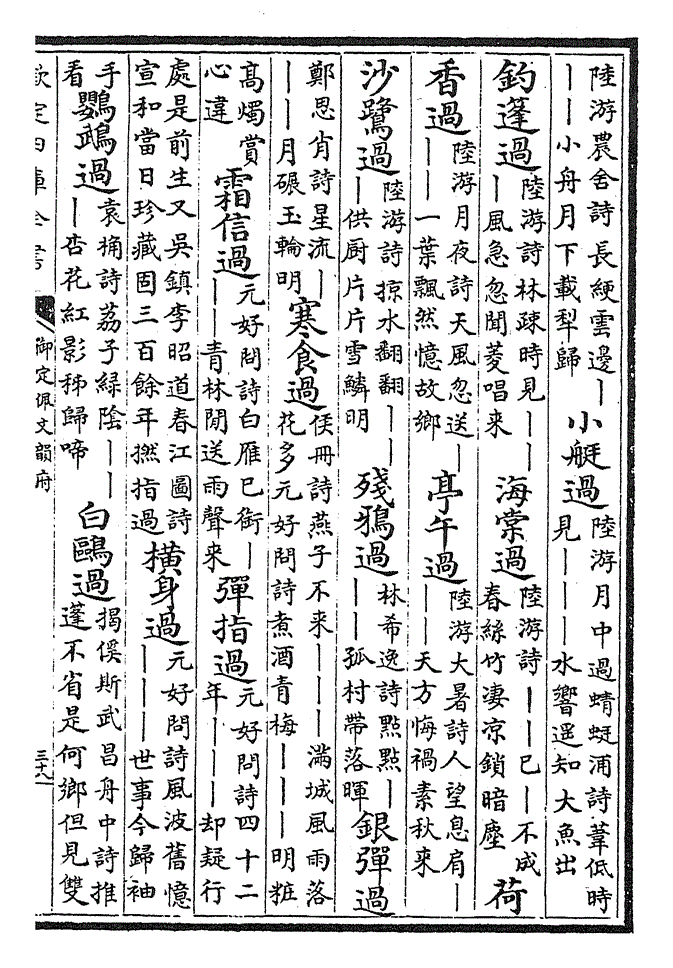 陸游農舍詩長綆雲邊｜
｜｜小舟月下載犁歸
小艇過
陸游月中過蜻蜓浦詩葦低時
見｜｜｜水響遥知大魚出
釣篷過
陸游詩林疎時見｜｜
｜風急忽聞菱唱來
海棠過
陸游詩｜｜已｜不成
春絲竹凄凉鎖暗塵
荷
香過
陸游月夜詩天風忽送｜
｜｜一葉飄然憶故鄉
亭午過
陸游大暑詩人望息肩｜
｜｜天方悔禍素秋来
沙鷺過
陸游詩掠水翻翻｜｜
｜供厨片片雪鱗明
殘鴉過
林希逸詩點點｜
｜｜孤村帶落暉
銀彈過
鄭思肖詩星流｜
｜｜月碾玉輪明
寒食過
侯冊詩燕子不来｜｜｜滿城風雨落
花多元好問詩煮酒青梅｜｜｜明粧
髙燭賞
心違
霜信過
元好問詩白雁已銜｜
｜｜青林閒送雨聲来
彈指過
元好問詩四十二
年｜｜｜却疑行
處是前生又吳鎮李昭道春江圖詩
宣和當日珍藏固三百餘年撚指過
橫身過
元好問詩風波舊憶
｜｜｜世事今歸袖
手
看
鸚鵡過
袁桷詩荔子緑陰｜｜
｜杏花紅影秭歸啼
白鷗過
揭傒斯武昌舟中詩推
篷不省是何鄉但見雙
欽定四庫全書
御定佩文韻府
三十八